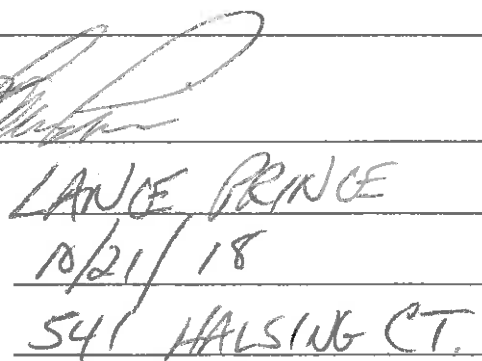 LANCE PRINCE
10/21/18
541 HALSING CT.